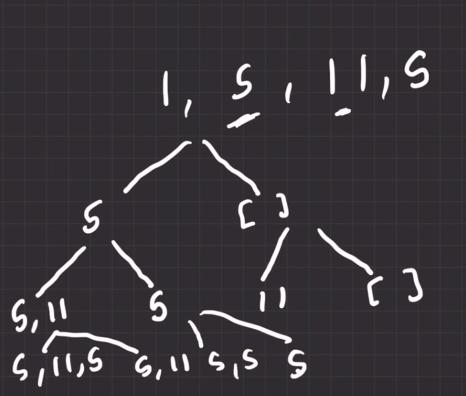 1, 5, 11, 5
5 [ ]
5,11 5 11 [ ]
5,11,5 5,11 5,5 5